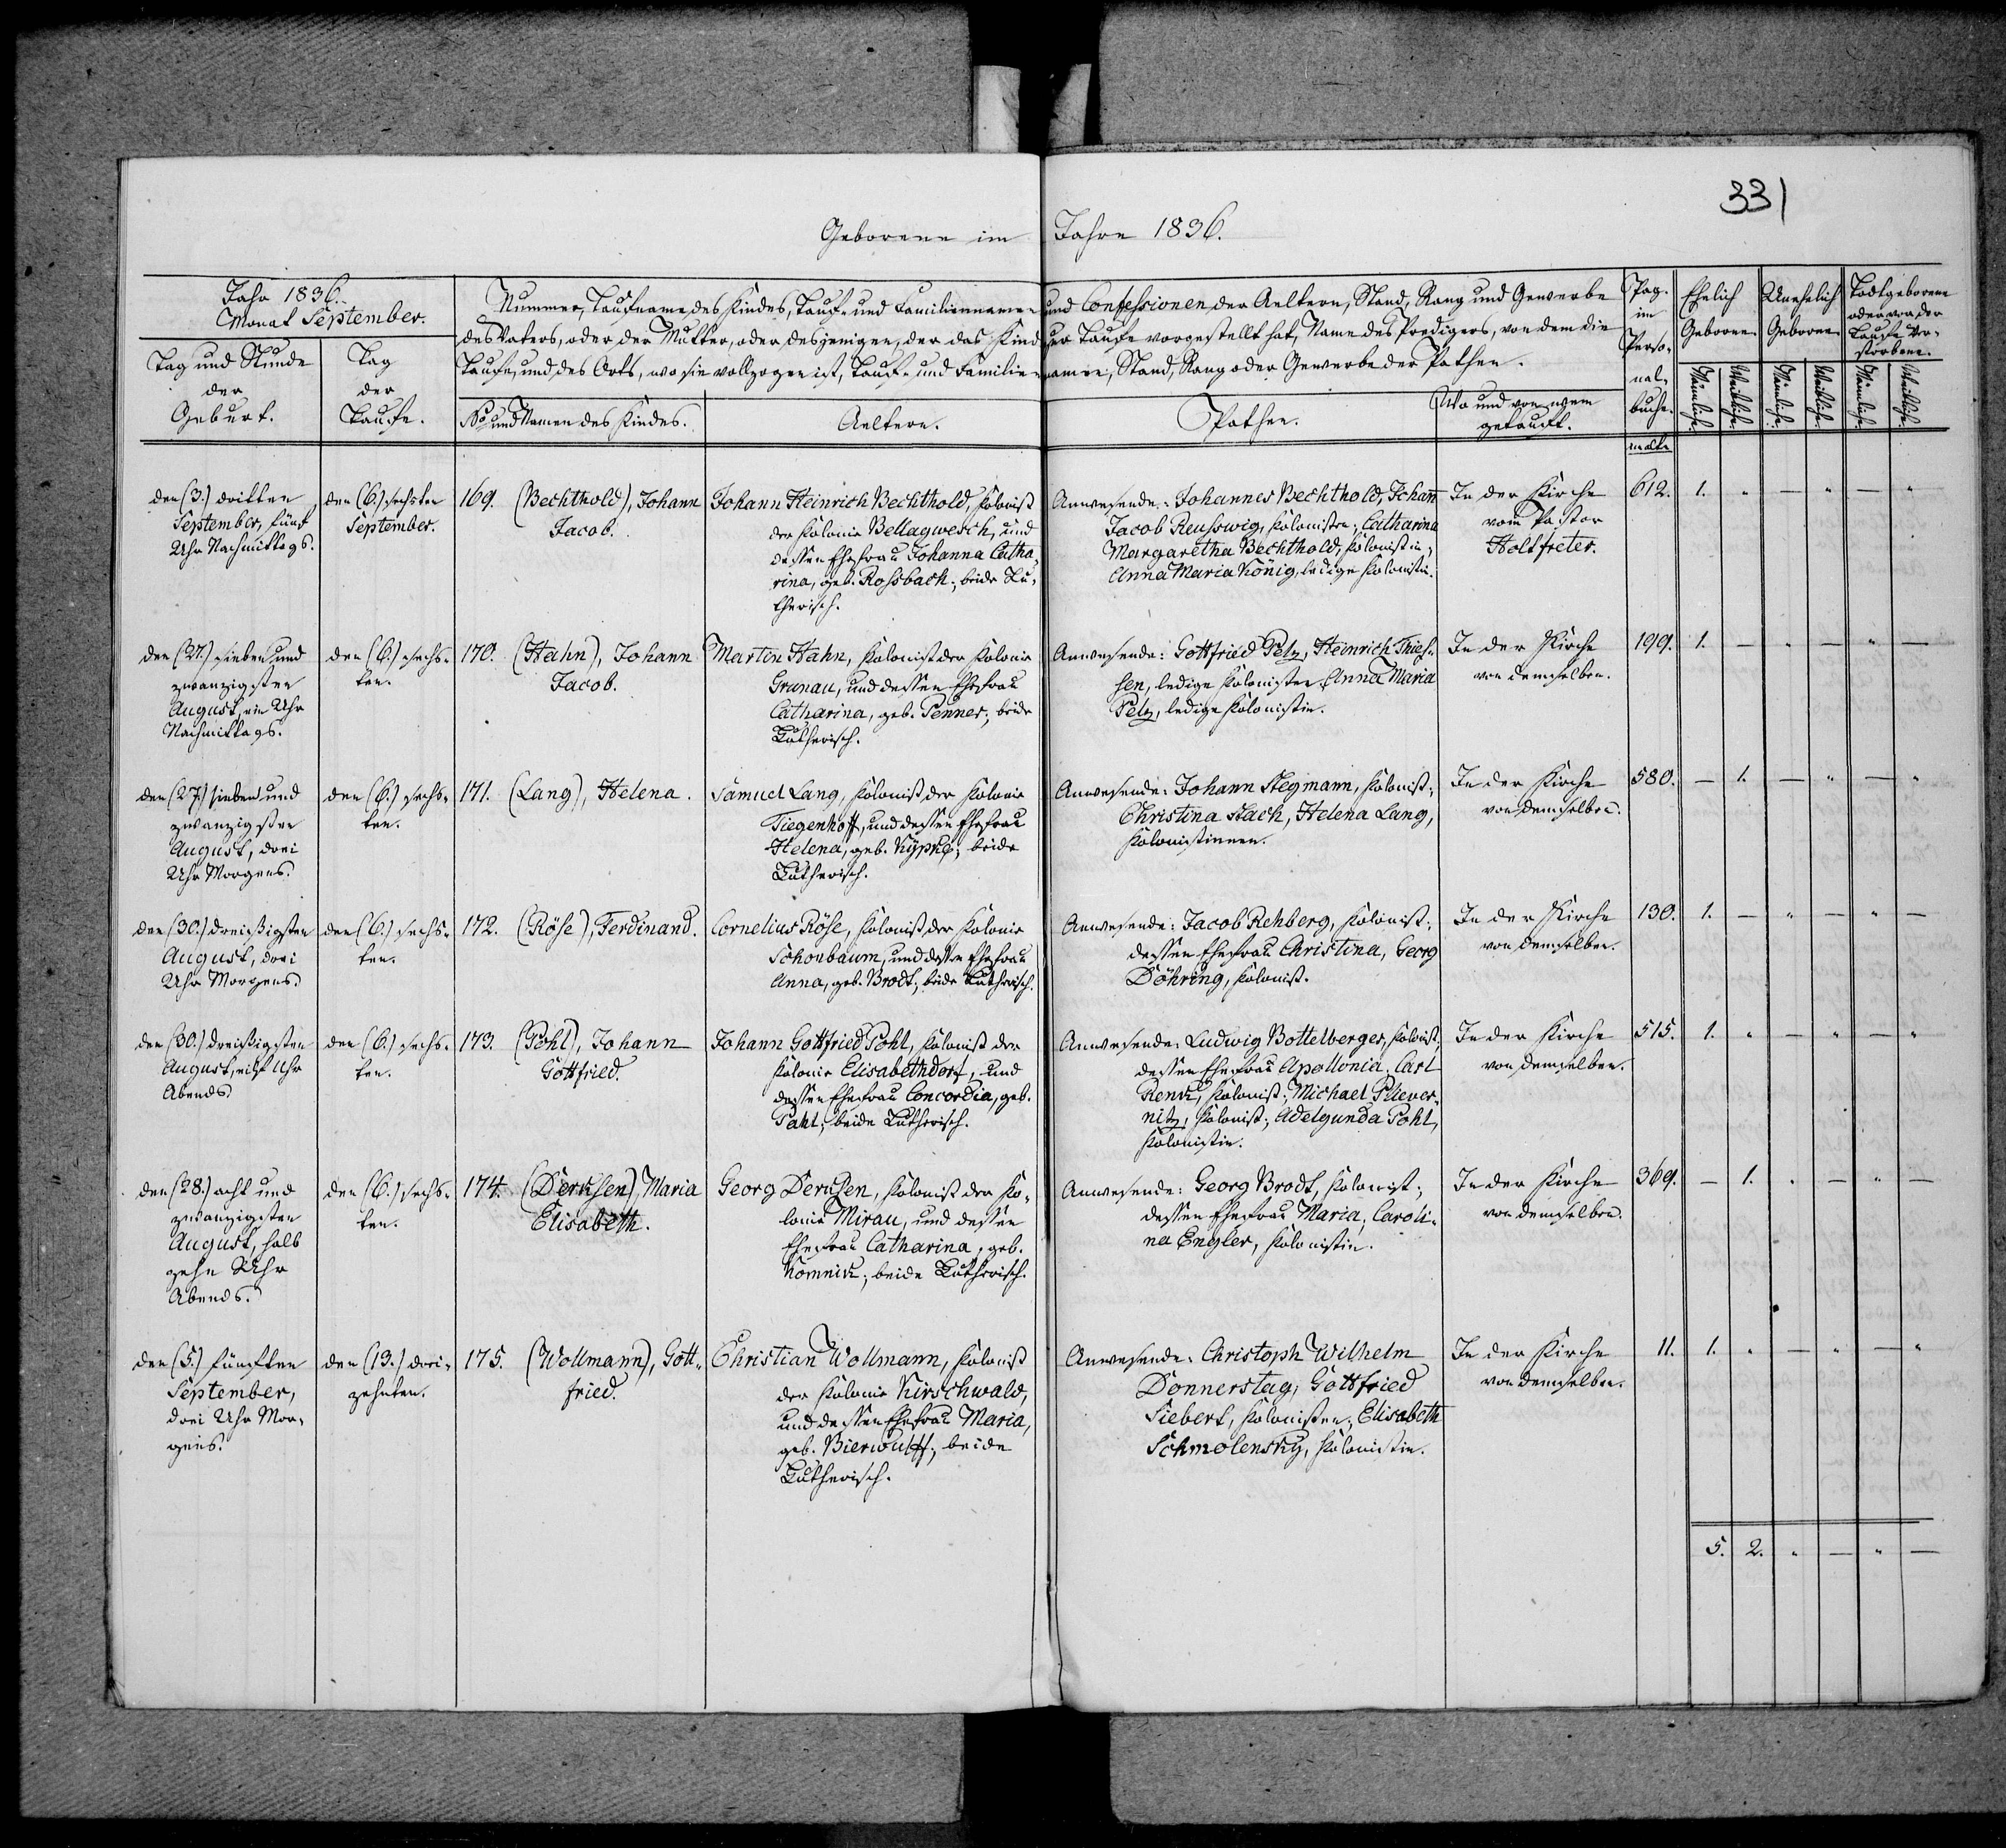 331
Geborene im Jahre 1836.
Jahr 1836.
Monat September.
Tag und Stunde
der
Geburt.
Tag
der
Taufe.
Nummer, Taufname des Kindes, Tauf- und Familiennamen und Confessionen der Aeltern, Stand, Rang und Gewerbe
des Vaters, oder der Mutter, oder desjenigen, der das Kind zur Taufe vorgestellt hat, Name des Predigers, von dem die
Taufe, und des Orts, wo sie vollzogen ist, Tauf- und Familiennamen, Stand, Rang oder Gewerbe der Pathen.
No und Namen des Kindes.
Aeltern.
Pathen.
Wo und von wem
getauft.
Pag.
im
Perso-
nal-
buche.
Ehelich
Geborne.
Unehelich
Geborne.
Todtgeborene
oder vor der
Taufe Ver-
storbene.
Männliche.
Weibliche.
Männliche.
Weibliche.
Männliche.
Weibliche.
den (3.) dritten
September, fünf
Uhr Nachmittags.
den (6.) sechsten
September.
169. (Bechthold), Johann
Jacob.
Johann Heinrich Bechthold, Kolonist
der Kolonie Bellagwesch, und
dessen Ehefrau Johanna Catha-
rina, geb. Rossbach; beide Lu-
therisch.
Anwesende: Johannes Bechthold, Johann
Jacob Reusswig, Kolonisten; Catharina
Margaretha Bechthold, Kolonistin;
Anna Maria König, ledige Kolonistin.
In der Kirche
vom Pastor
Holtfreter.
612. 1. " — " — "
den (27.) sieben und
zwanzigsten
August, ein Uhr
Nachmittags.
den (6.) sechs-
ten.
170. (Hahn), Johann
Jacob.
Martin Hahn, Kolonist der Kolonie
Grunau, und dessen Ehefrau
Catharina, geb. Penner; beide
Lutherisch.
Anwesende: Gottfried Pelz, Heinrich Thies-
sen, ledige Kolonisten; Anna Maria
Pelz, ledige Kolonistin.
In der Kirche
von demselben.
199. 1. — " — " —
den (27.) sieben und
zwanzigsten
August, drei
Uhr Morgens.
den (6.) sechs-
ten.
171. (Lang), Helena.
Samuel Lang, Kolonist der Kolonie
Tiegenhoff, und dessen Ehefrau
Helena, geb. Kÿpke; beide
Lutherisch.
Anwesende: Johann Stegmann, Kolonist;
Christina Stach, Helena Lang,
Kolonistinnen.
In der Kirche
von demselben.
580. — 1. — " — "
den (30.) dreißigsten
August, drei
Uhr Morgens.
den (6.) sechs-
ten.
172. (Röse), Ferdinand.
Cornelius Röse, Kolonist der Kolonie
Schonbaum, und dessen Ehefrau
Anna, geb. Brodt; beide Lutherisch.
Anwesende: Jacob Rehberg, Kolonist;
dessen Ehefrau Christina, Georg
Döhring, Kolonist.
In der Kirche
von demselben.
130. 1. — " — " —
den (30.) dreißigsten
August, eilf Uhr
Abends.
den (6.) sechs-
ten.
173. (Pohl), Johann
Gottfried.
Johann Gottfried Pohl, Kolonist der
Kolonie Elisabethdorf, und
dessen Ehefrau Concordia, geb.
Pahl; beide Lutherisch.
Anwesende: Ludwig Bottelberger, Kolonist,
dessen Ehefrau Apollonia; Carl
Renk, Kolonist; Michael Pliever-
nitz, Kolonist; Adelgunda Pohl,
Kolonistin.
In der Kirche
von demselben.
515. 1. " — " — "
den (28.) acht und
zwanzigsten
August, halb
zehn Uhr
Abends.
den (6.) sechs-
ten.
174. (Derksen), Maria
Elisabeth.
Georg Derksen, Kolonist der Ko-
lonie Mirau, und dessen
Ehefrau Catharina, geb.
Komnik; beide Lutherisch.
Anwesende: Georg Brodt, Kolonist;
dessen Ehefrau Maria; Caroli-
na Engler, Kolonistin.
In der Kirche
von demselben.
369. — 1. " — " —
den (5.) fünften
September,
drei Uhr Mor-
gens.
den (13.) drei-
zehnten.
175. (Wollmann), Gott-
fried.
Christian Wollmann, Kolonist
der Kolonie Kirschwald,
und dessen Ehefrau Maria,
geb. Bierwulff; beide
Lutherisch.
Anwesende: Christoph Wilhelm
Donnerstag, Gottfried
Siebert, Kolonisten; Elisabeth
Schmolensky, Kolonistin.
In der Kirche
von demselben.
11. 1. " — " — "
5. 2. " — " —